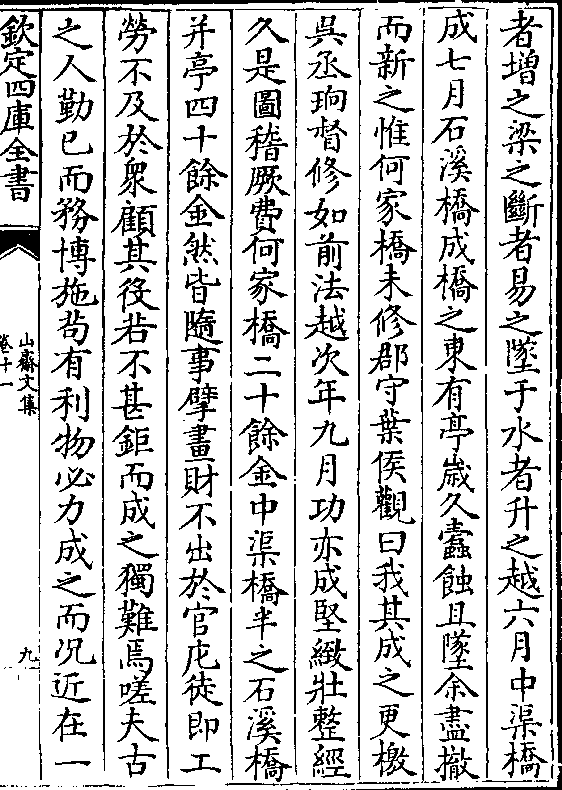 者増之梁之斷者易之墜于水者升之越六月中渠橋
成七月石溪橋成橋之東有亭歲久蠹蝕且墜余盡撤
而新之惟何家橋未修郡守葉侯觀曰我其成之更檄
吳丞珣督修如前法越次年九月功亦成堅緻壯整經
久是圖稽厥費何家橋二十餘金中渠橋半之石溪橋
并亭四十餘金然皆隨事擘畫財不出於官庀徒即工
勞不及於衆顧其役若不甚鉅而成之獨難焉嗟夫古
之人勤已而務博施茍有利物必力成之而况近在一
欽定四庫全書
山齋文集
卷十一
九